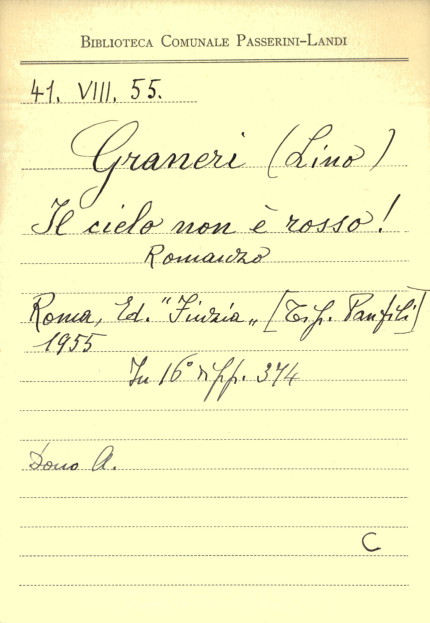 BIBLIOTECA COMUNALE PASSERINI-LANDI
41. VIII. 55.
Graneri (Lino)
Il cielo non è rosso!
Romanzo
Roma, Ed. " " [Tip. Panfili]
1955
In 16° di pp. 374
Dono A.
C